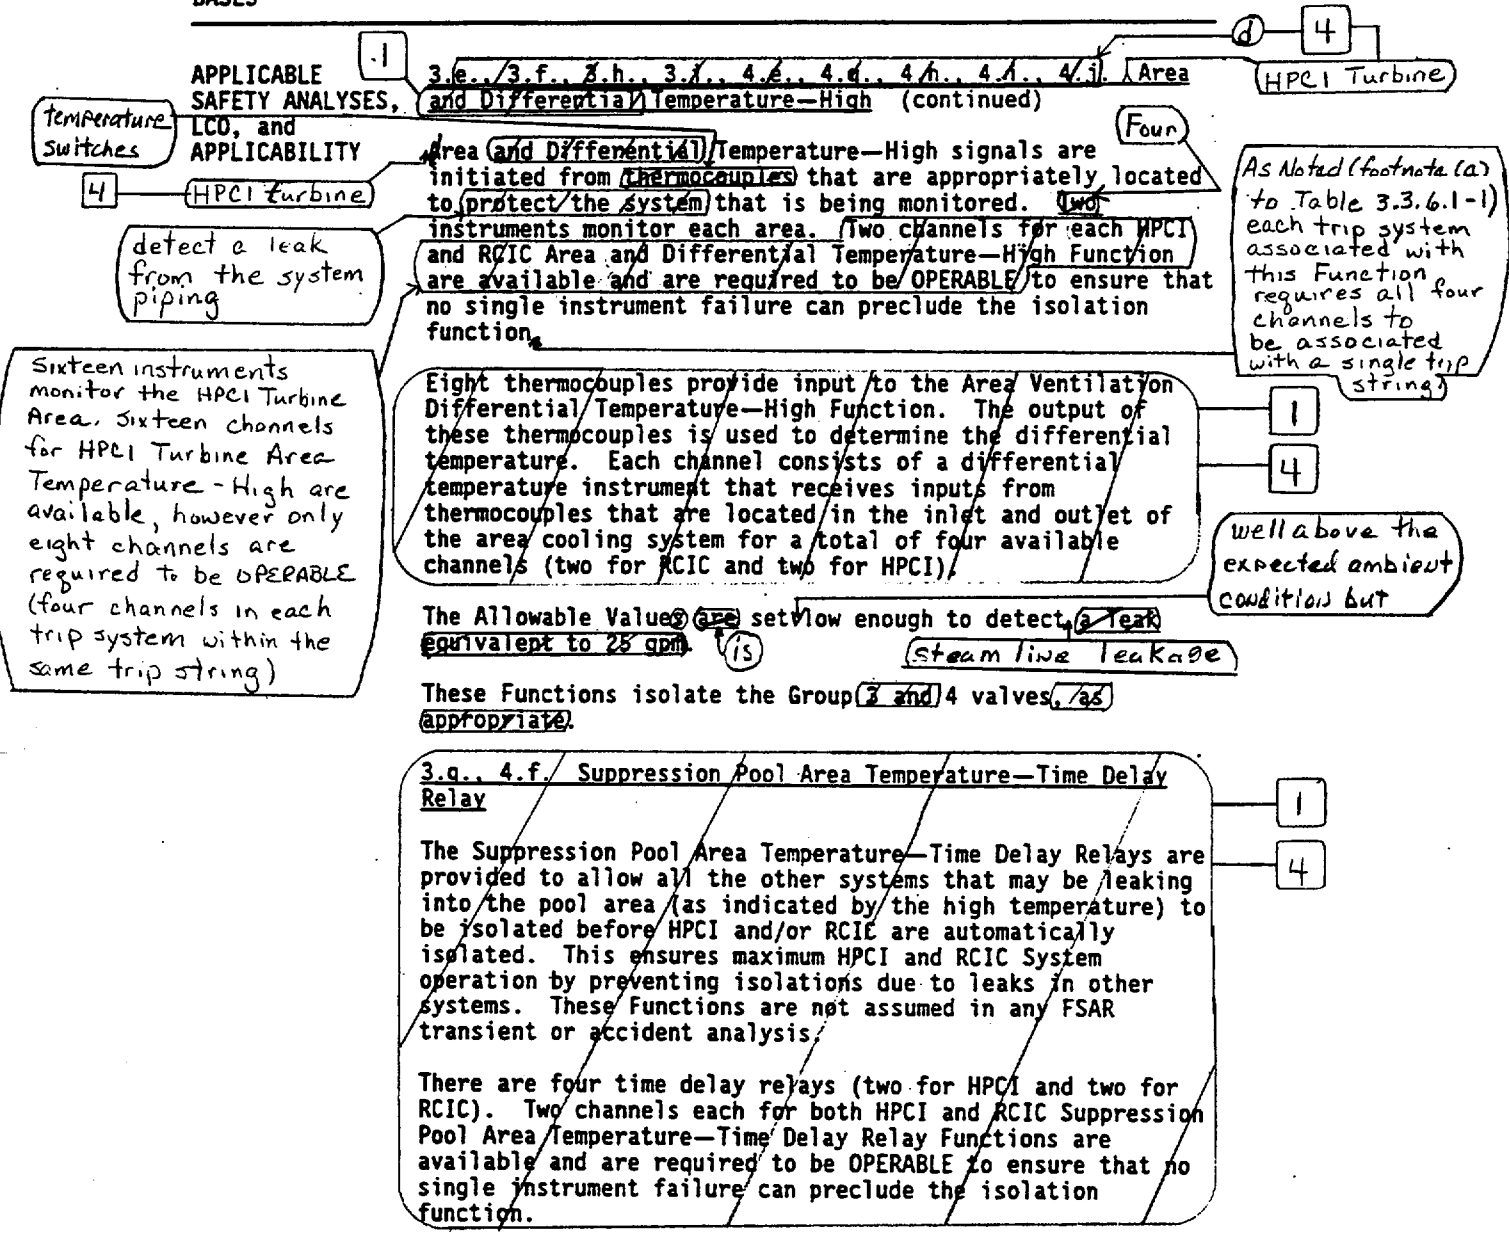 BASES
.1
d
4
HPCI Turbine
APPLICABLE
SAFETY ANALYSES,
LCO, and
APPLICABILITY
3.e., 3.f., 3.h., 3.i., 4.e., 4.g., 4.h., 4.i., 4.j. Area
and Differential Temperature—High (continued)
temperature
switches
Four
Area and Differential Temperature—High signals are
initiated from thermocouples that are appropriately located
to protect the system that is being monitored. Two
instruments monitor each area. Two channels for each HPCI
and RCIC Area and Differential Temperature—High Function
are available and are required to be OPERABLE to ensure that
no single instrument failure can preclude the isolation
function.
4
HPCI turbine
detect a leak
from the system
piping
As Noted (footnote (a)
to Table 3.3.6.1-1)
each trip system
associated with
this Function
requires all four
channels to
be associated
with a single trip
string)
Sixteen instruments
monitor the HPCI Turbine
Area. Sixteen channels
for HPCI Turbine Area
Temperature - High are
available, however only
eight channels are
required to be OPERABLE
(four channels in each
trip system within the
same trip string)
Eight thermocouples provide input to the Area Ventilation
Differential Temperature—High Function. The output of
these thermocouples is used to determine the differential
temperature. Each channel consists of a differential
temperature instrument that receives inputs from
thermocouples that are located in the inlet and outlet of
the area cooling system for a total of four available
channels (two for RCIC and two for HPCI).
1
4
well above the
expected ambient
condition but
The Allowable Values are set low enough to detect a leak
equivalent to 25 gpm.
is
steam line leakage
These Functions isolate the Group 3 and 4 valves, as
appropriate.
3.g., 4.f. Suppression Pool Area Temperature—Time Delay
Relay
1
The Suppression Pool Area Temperature—Time Delay Relays are
provided to allow all the other systems that may be leaking
into the pool area (as indicated by the high temperature) to
be isolated before HPCI and/or RCIC are automatically
isolated. This ensures maximum HPCI and RCIC System
operation by preventing isolations due to leaks in other
systems. These Functions are not assumed in any FSAR
transient or accident analysis.
4
There are four time delay relays (two for HPCI and two for
RCIC). Two channels each for both HPCI and RCIC Suppression
Pool Area Temperature—Time Delay Relay Functions are
available and are required to be OPERABLE to ensure that no
single instrument failure can preclude the isolation
function.